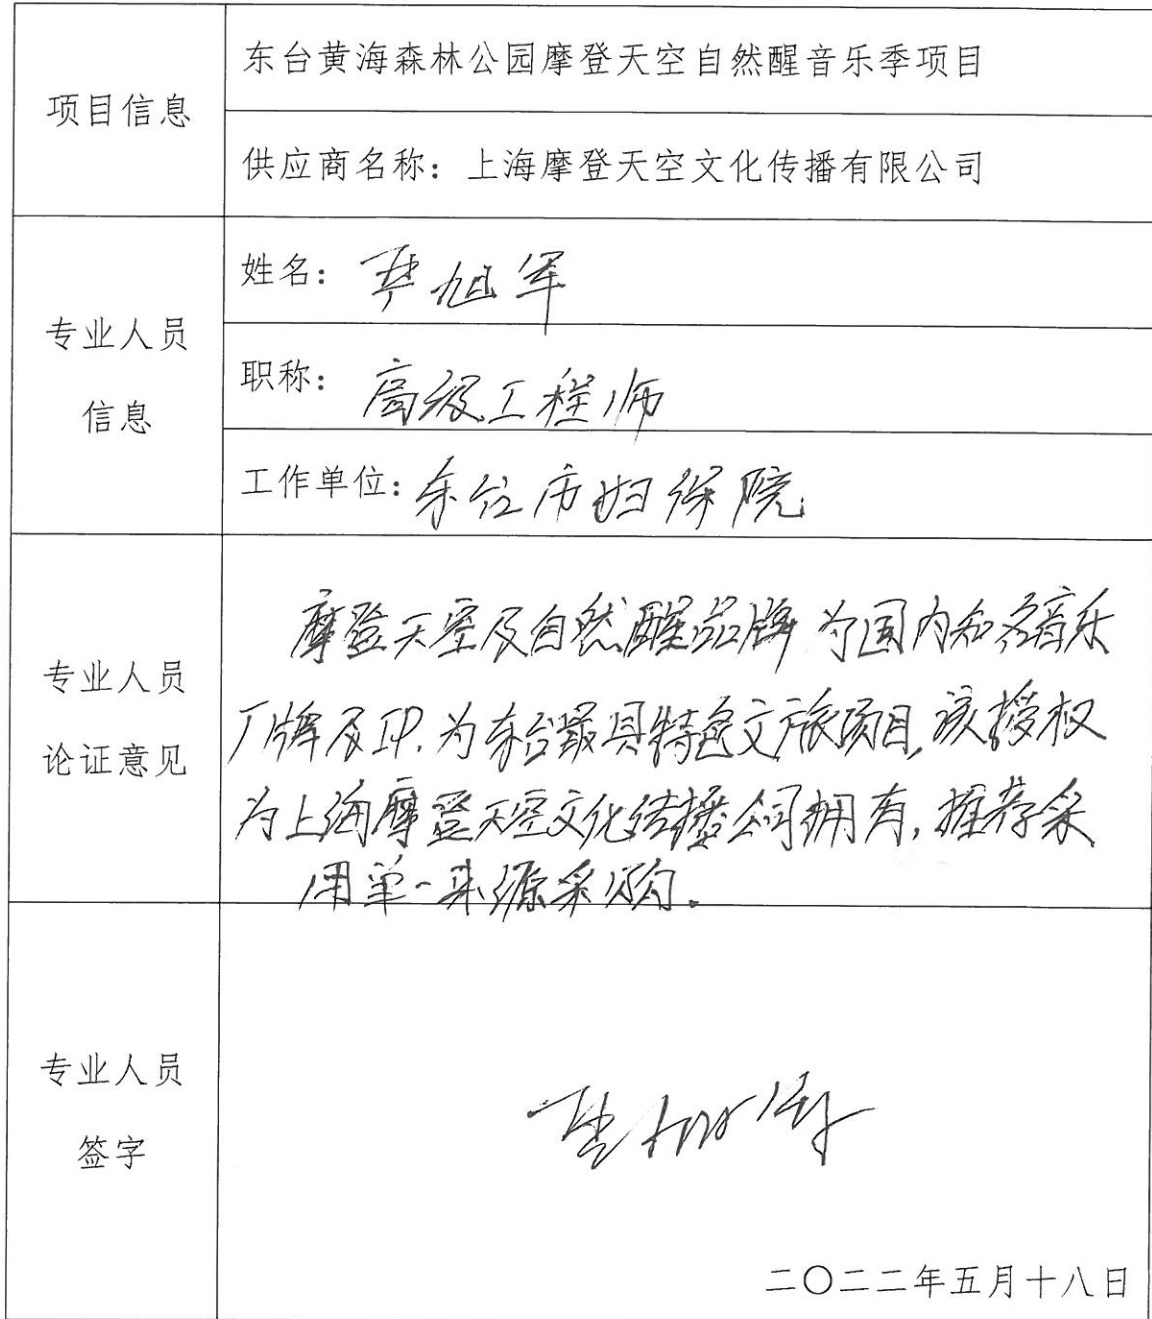 项目信息
东台黄海森林公园摩登天空自然醒音乐季项目
供应商名称：上海摩登天空文化传播有限公司
专业人员
信息
姓名：旭军
职称：高级工程师
工作单位：东台市妇保院
专业人员
论证意见
摩登天空及自然醒品牌为国内知名音乐
厂牌及IP.为东台最具特色文旅项目,该授权
为上海摩登天空文化传播公司拥有,推荐采
用单一来源采购.
专业人员
签字
二〇二二年五月十八日